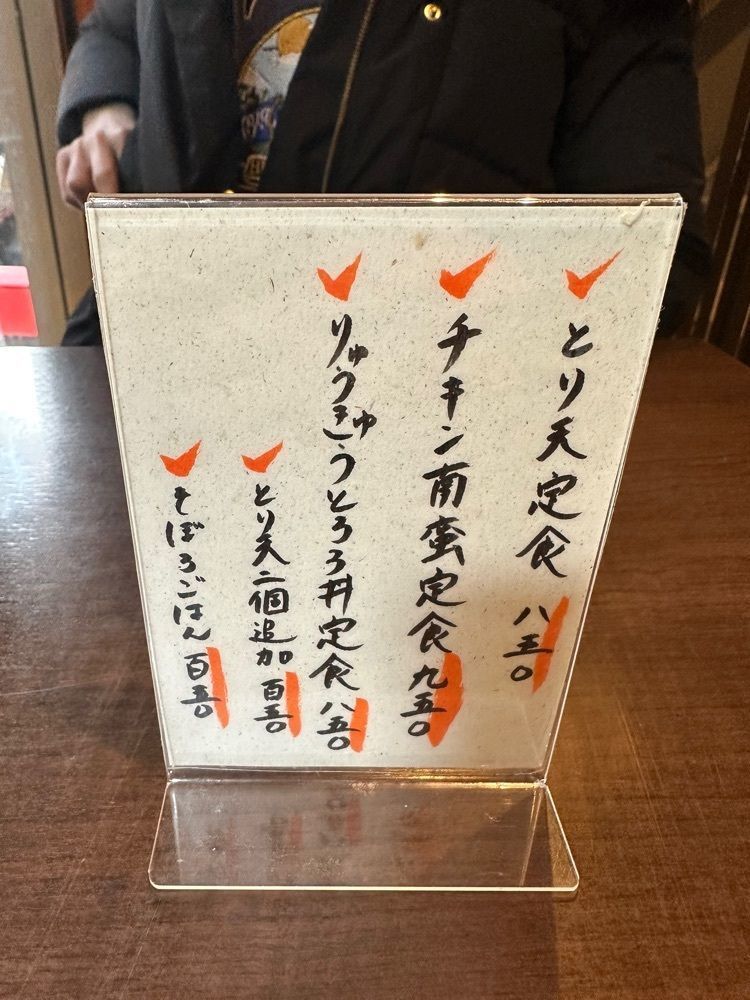 とり天定食 八五〇
チキン南蛮定食 九五〇
りゅうきゅうとろろ丼定食 八五〇
とり天二個追加 百五〇
そぼろごはん 百五〇